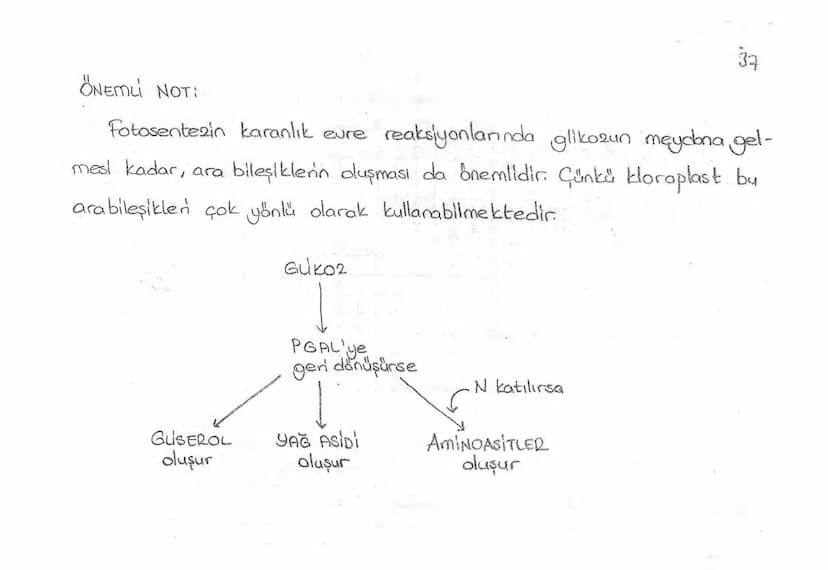 37
ÖNEMLİ NOT:
Fotosentezin karanlık evre reaksiyonlarında glikozun meydana gel-
mesi kadar, ara bileşiklerin oluşması da önemlidir. Çünkü kloroplast bu
arabileşikleri çok yönlü olarak kullanabilmektedir.
GLİKOZ
PGAL'ye
geri dönüşürse
N katılırsa
GLİSEROL YAĞ ASİDİ AMİNOASİTLER
oluşur oluşur oluşur